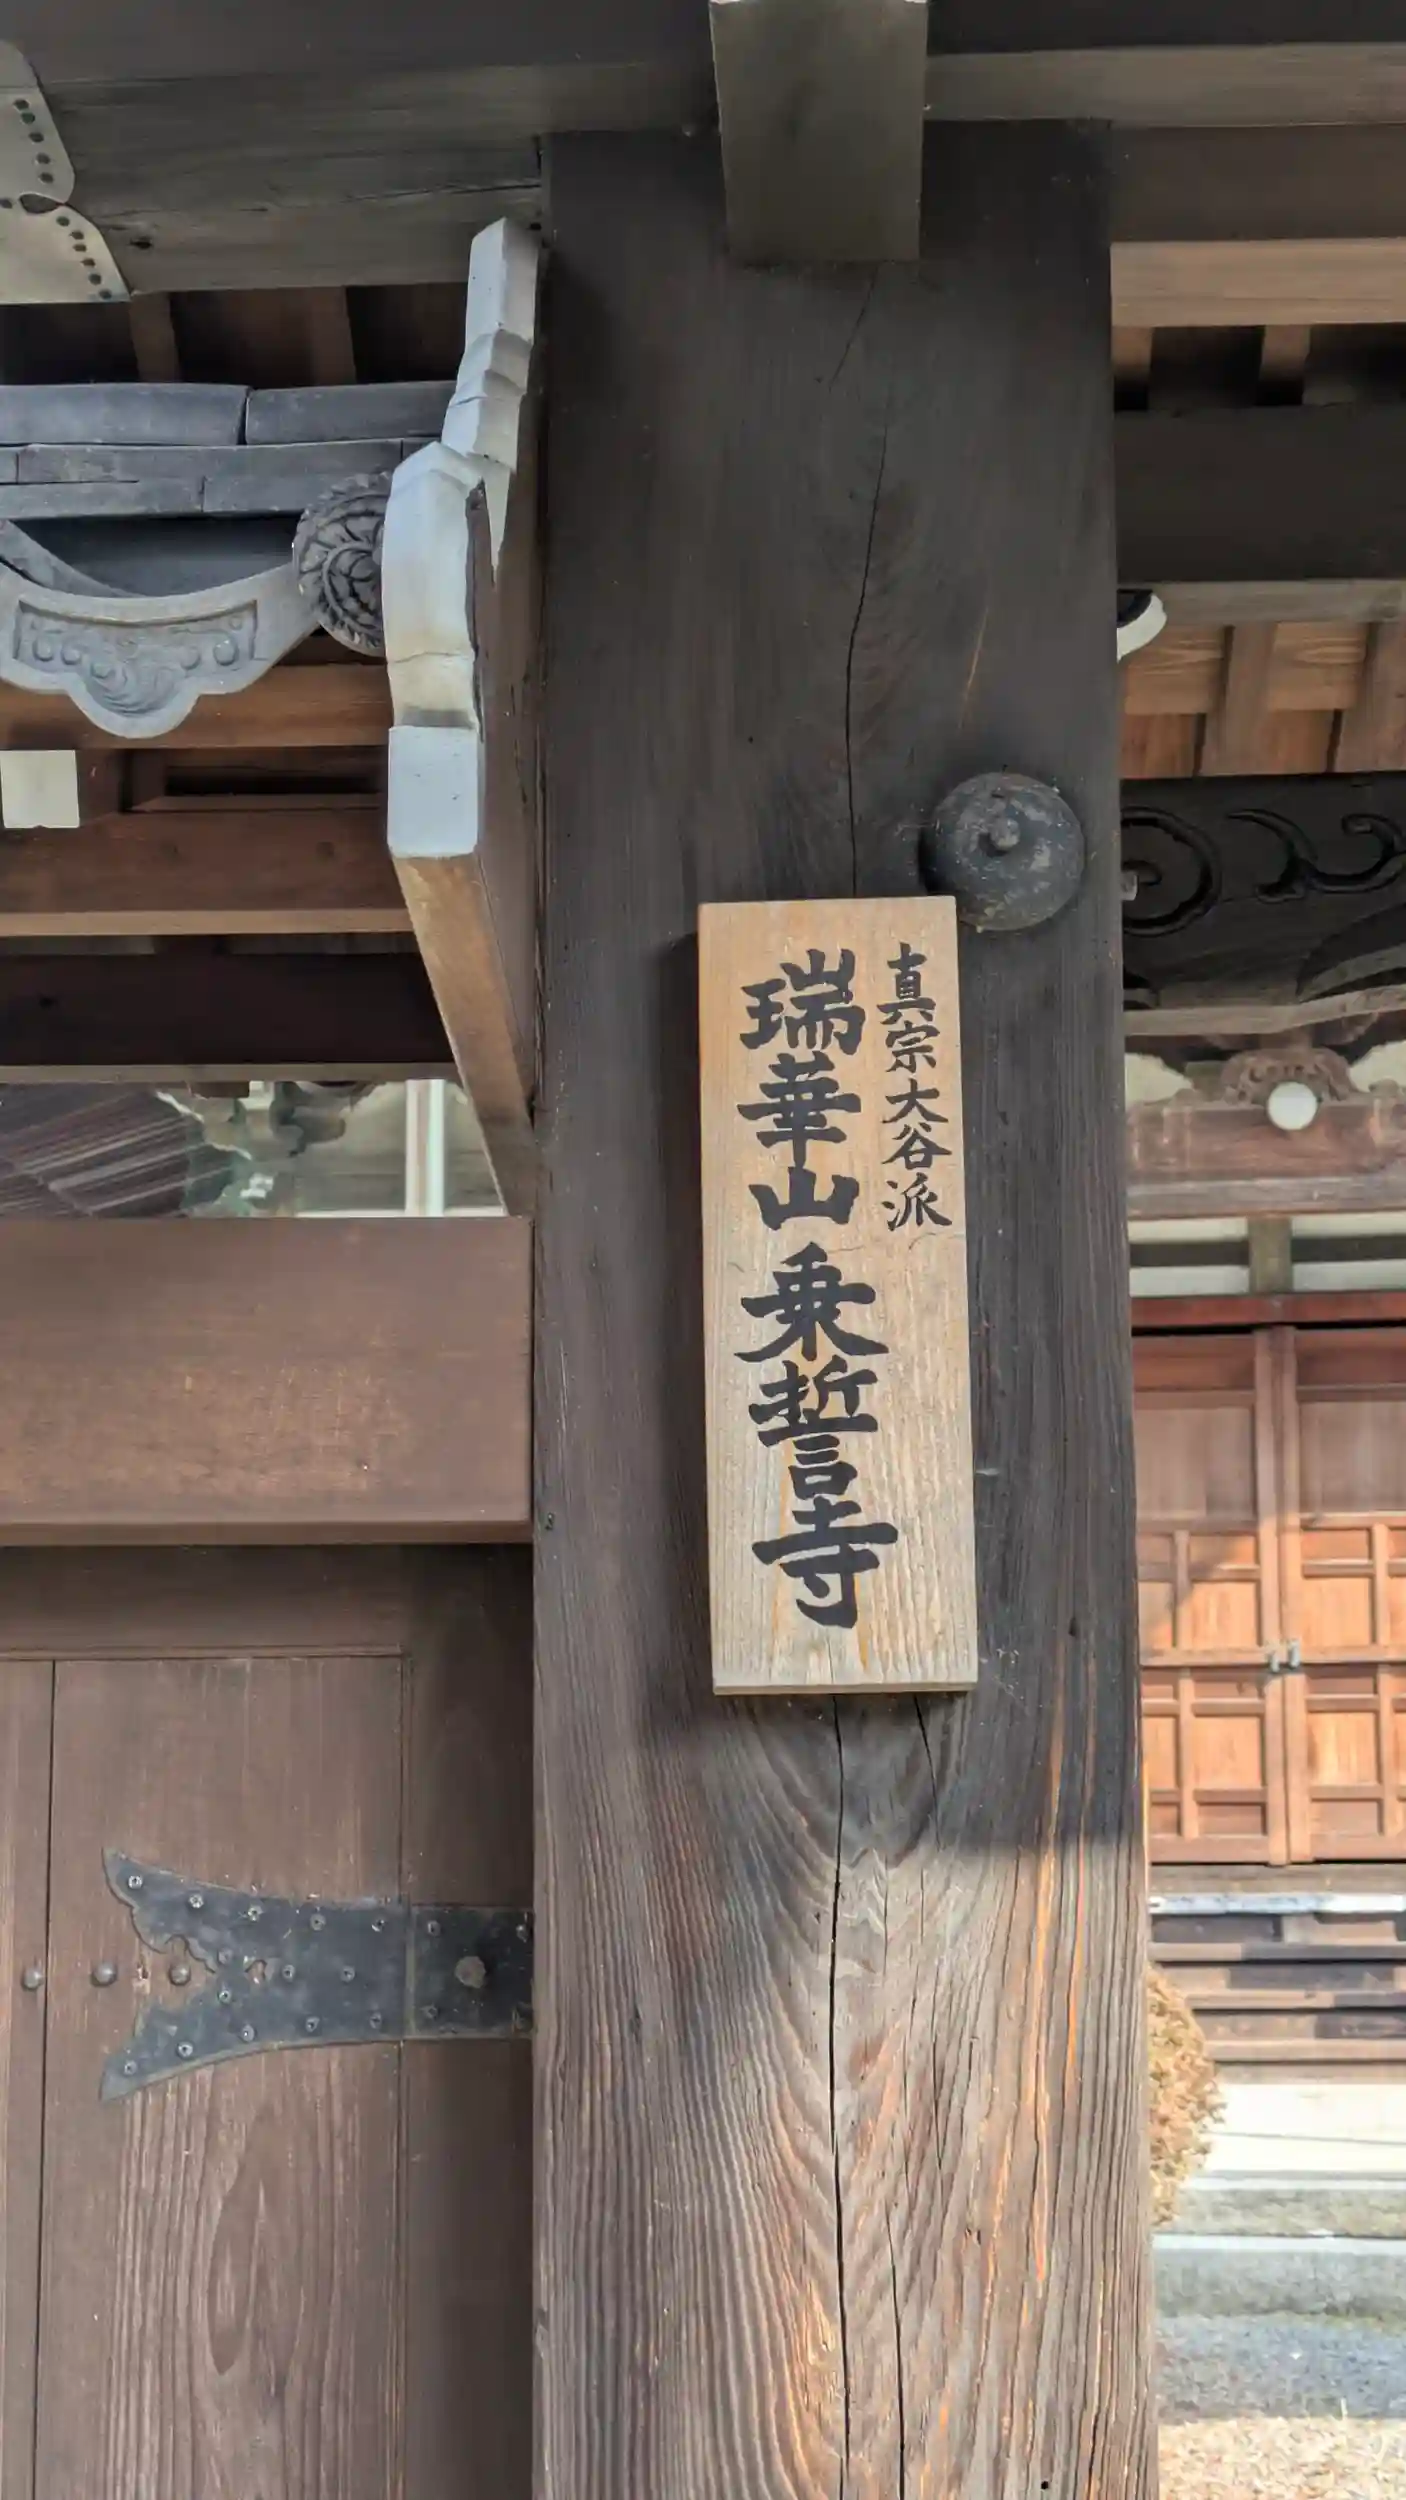 真宗大谷派
瑞華山乗誓寺